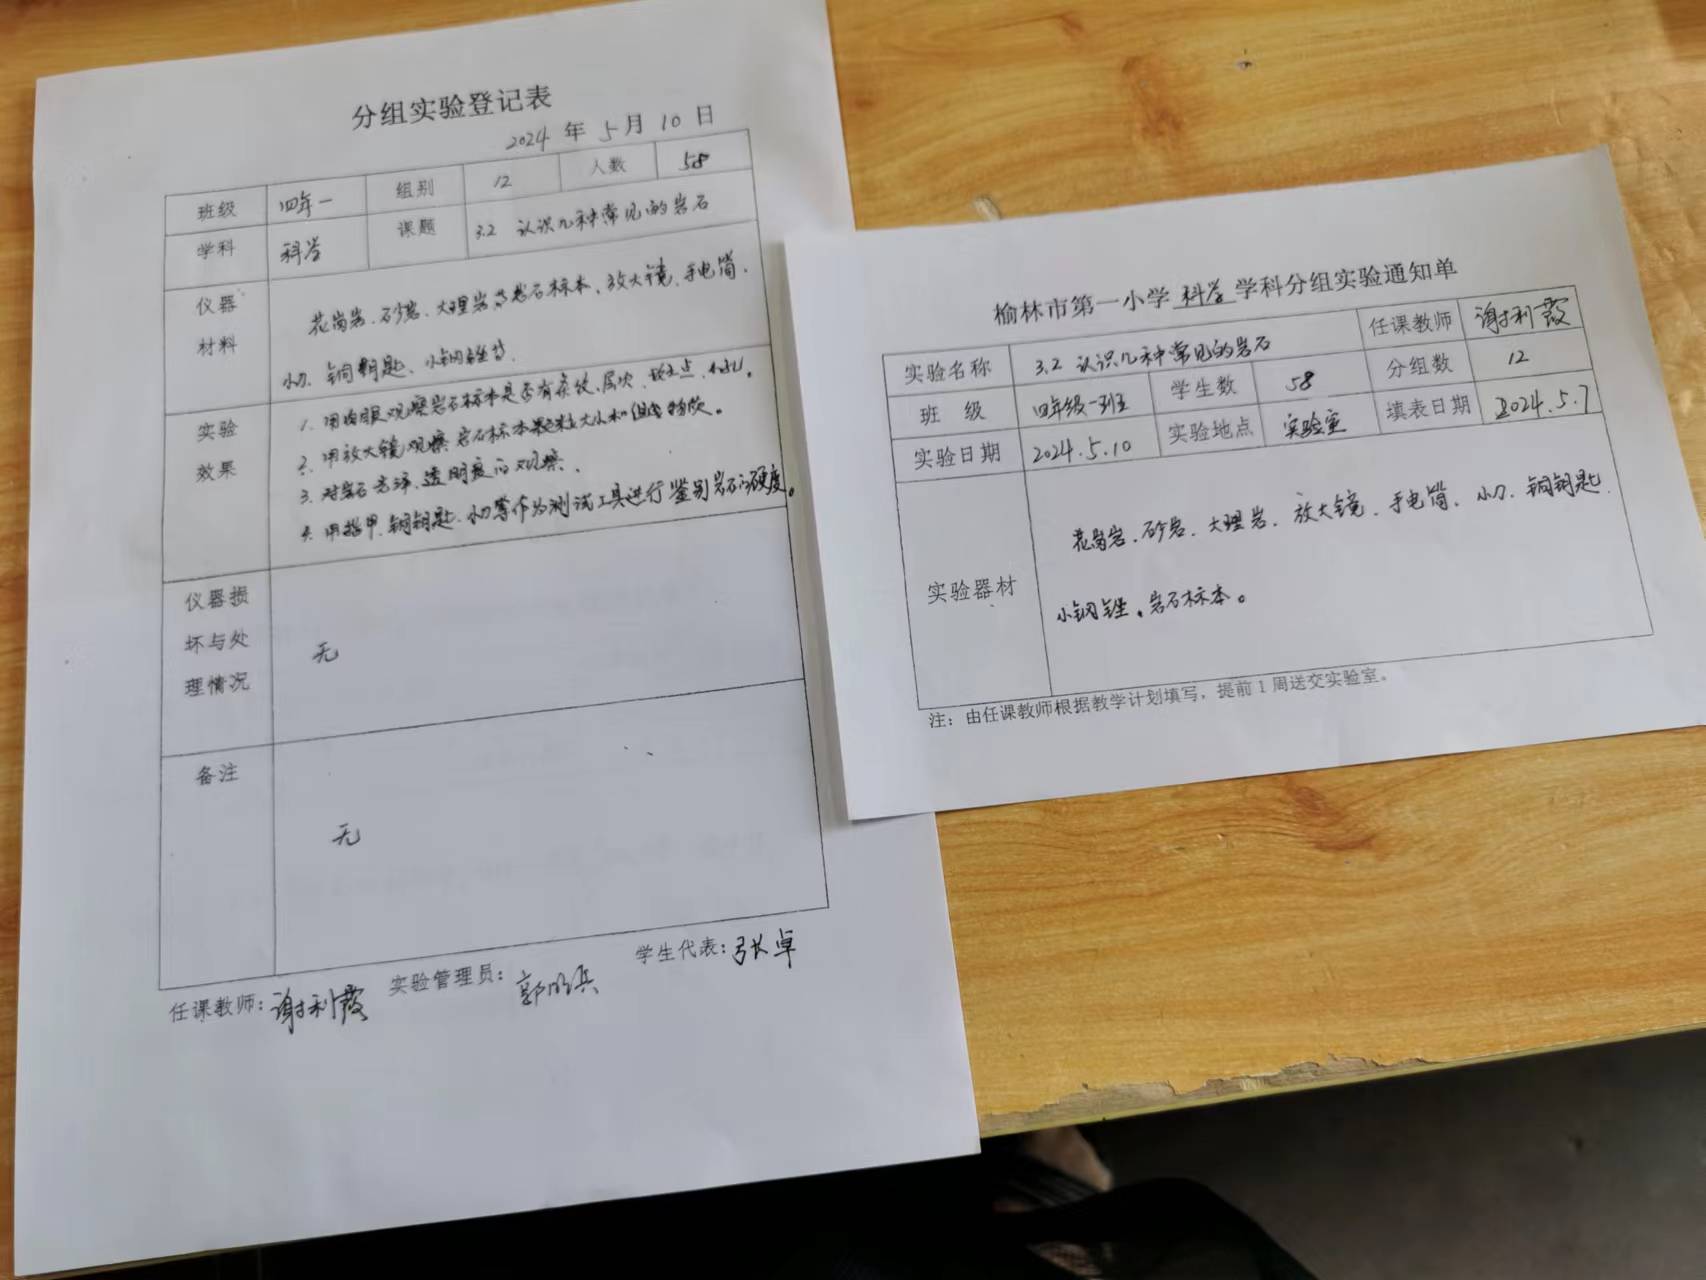 分组实验登记表
2024 年 5 月 10 日
班级 四年一 组别 12 人数 58
学科 科学 课题 3.2 认识几种常见的岩石
仪器
材料
花岗岩、砂岩、大理岩等岩石标本、放大镜、手电筒、
小刀、铜钥匙、小钢锉等.
实验
效果
1. 用肉眼观察岩石标本是否有条纹、层次、小孔。
2. 用放大镜观察岩石标本颗粒大小和组成物质。
3. 对岩石光泽、透明度的观察.
4. 用指甲、铜钥匙、小刀等作为测试工具进行鉴别岩石的硬度。
仪器损
坏与处
理情况
无
备注
无
任课教师: 谢利霞 实验管理员: 学生代表: 张卓
榆林市第一小学 科学 学科分组实验通知单
实验名称 3.2 认识几种常见的岩石 任课教师 谢利霞
班 级 四年级一班 学生数 58 分组数 12
实验日期 2024.5.10 实验地点 实验室 填表日期 2024.5.7
实验器材
花岗岩、砂岩、大理岩、放大镜、手电筒、小刀、铜钥匙、
小钢锉、岩石标本。
注：由任课教师根据教学计划填写，提前1周送交实验室。